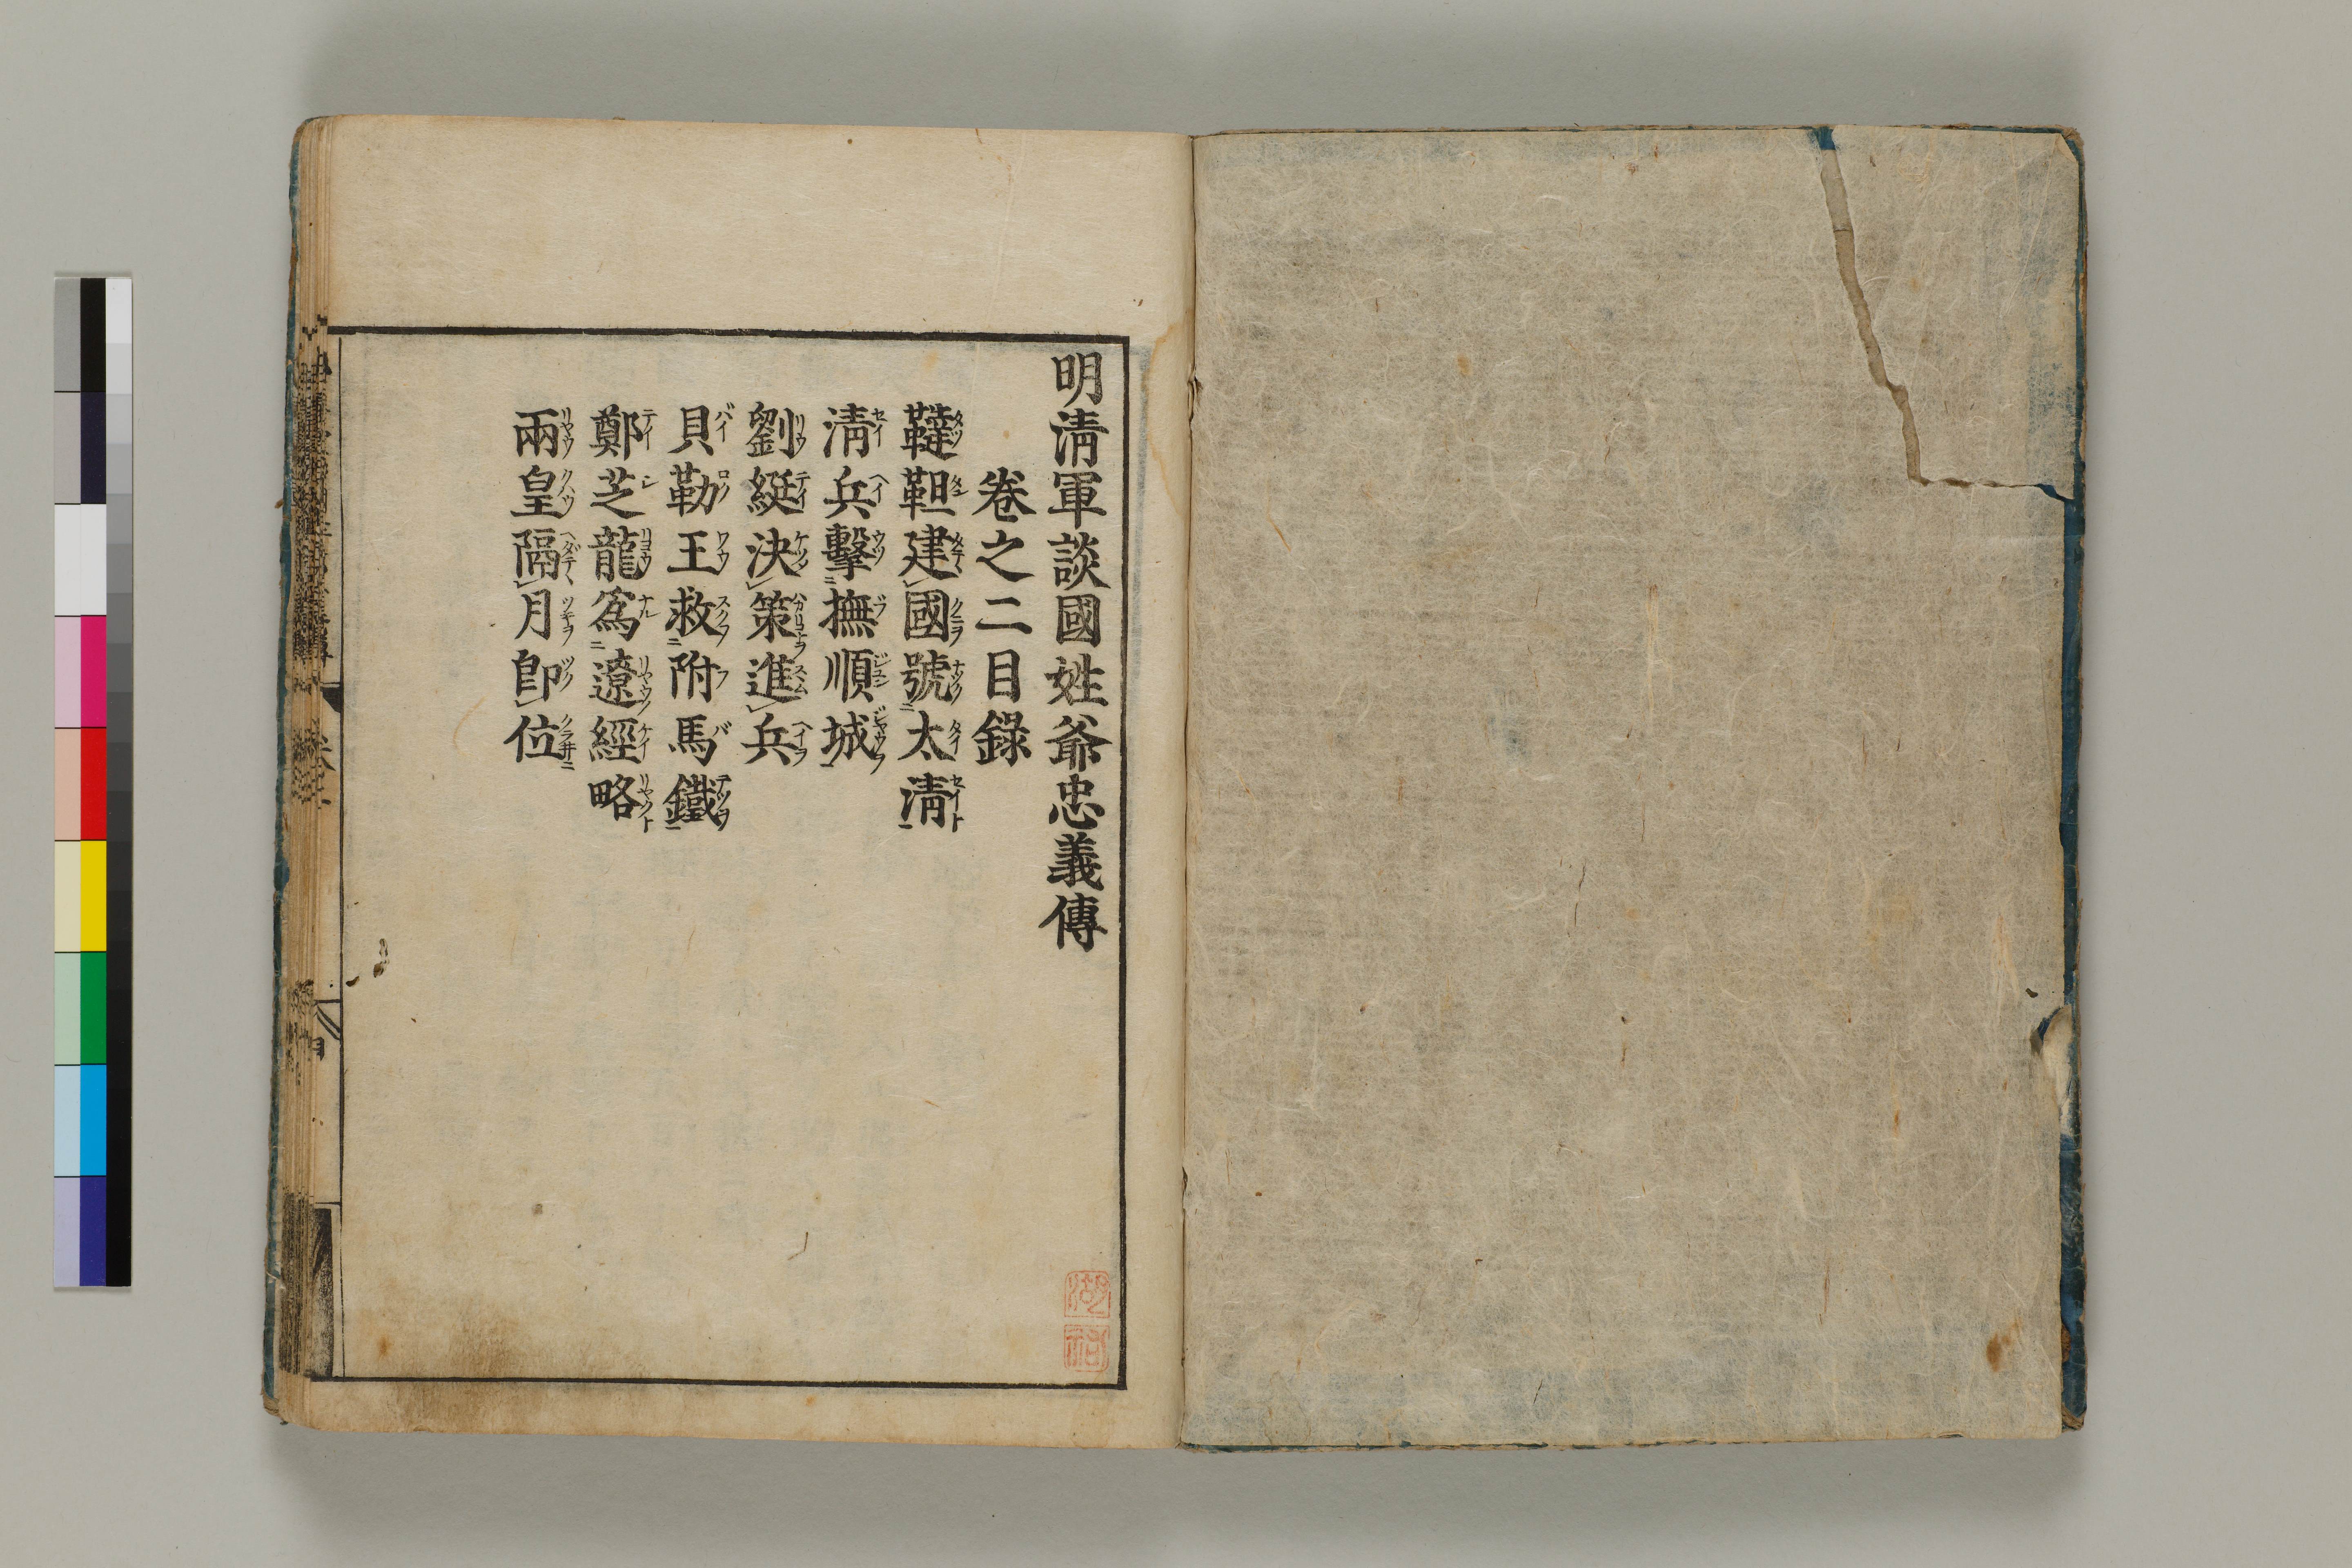 明淸軍談國姓爺忠義傳
卷之二目錄
韃靼建國號太淸
淸兵擊撫順城
劉綎決策進兵
貝勒王救附馬鐵
鄭芝龍爲遼經略
兩皇隔月卽位